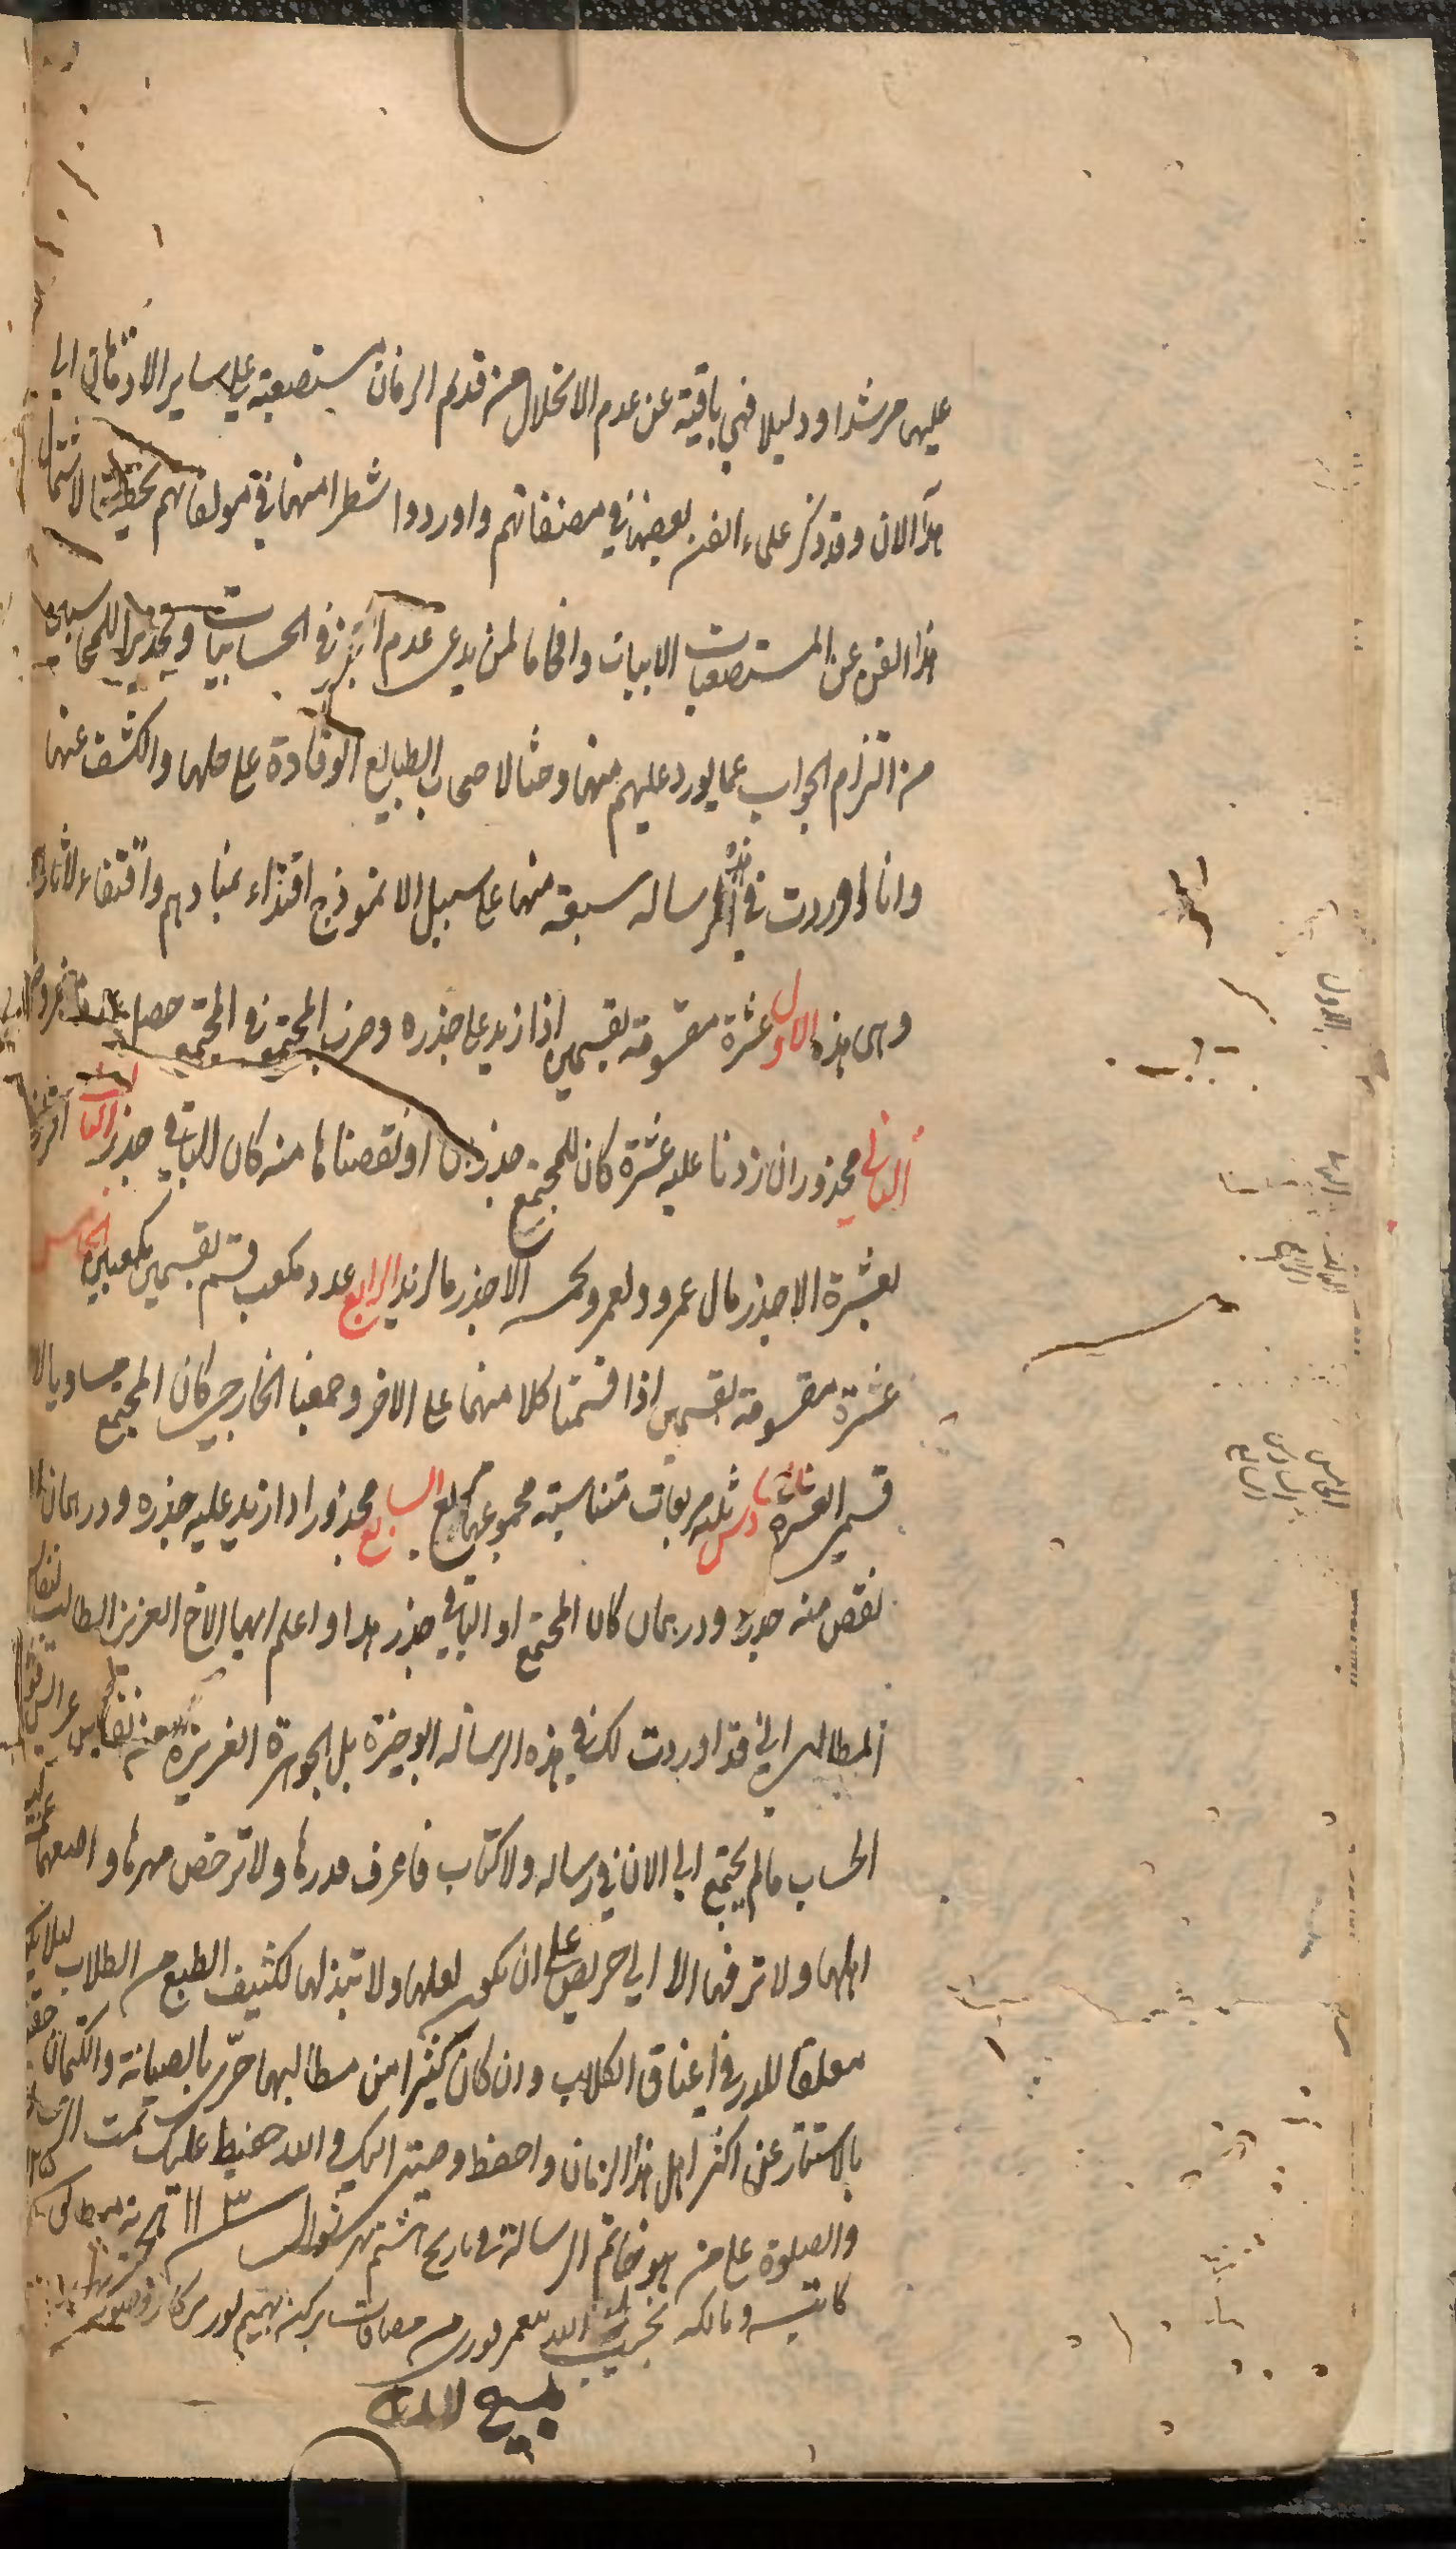 عليها مرشدا ودليلا فهي باقية عن عدم الانحلال من قديم الزمان مستصعبة على ساير الاذهان الى
هذا الان وقد ذكر علماء الفن بعضها في مصنفاتهم واوردوا شطرا منها في مولفاتهم تحقيقا لاشتمال
هذا الفن عن المستصعبات الابيات وافحاما لمن يدعى عدم العجز في الحسابيات وتحذيرا للمحاسبين
من التزام الجواب عما يورد عليهم منها وحثا لاصحاب الطبايع الوقادة على حلها والكشف عنها
وانا اوردت في هذه الرساله سبعة منها على سبيل الانموذج اقتداء بمنارهم واقتفاء لاثارهم
وهى هذه الاول عشرة مقسومة بقسمين اذا زيد على جذره وضرب المجتمع في المجتمع حصل عدد مفروض
الثانى مجذور ان زدنا عليه عشرة كان للمجتمع جذر او نقصناها منه كان للباقى جذر الثالث اقر لزيد
بعشرة الا جذر مال عمرو ولعمرو بخمسه الا جذر مال زيد الرابع عدد مكعب قسم بقسمين مكعبين الخامس
عشرة مقسومة بقسمين اذا قسمنا كلا منهما على الاخر وجمعنا الخارجين كان المجتمع مساويا لاحد
قسمى العشرة السادس ثلثة مربعات متناسبة مجموعها مربع السابع مجذور اذا زيد عليه جذره ودرهمان او
نقص منه جذره ودرهمان كان المجتمع او الباقى جذر هذا واعلم ايها الاخ العزيز الطالب لنفايس
المطالب انى قد اوردت لك في هذه الرساله الوجيزة بل الجوهرة العزيزة من نفايس عرايس قوانين
الحساب ما لم يجتمع الى الان في رساله ولا كتاب فاعرف قدرها ولا ترخص مهرها وامنعها
اهلها ولا تزفها الا الى حريص على ان يكون بعلها ولا تبذلها لكثيف الطبع من الطلاب ليلا يكون
معلقا للدر في اعناق الكلاب وان كان كثيرا من مطالبها حرى بالصيانة والكتمان حقيق
بالاستتار عن اكثر اهل هذا الزمان واحفظ وصيتى اليك والله حفيظ عليك تمت الرساله
والصلوة على من هو خاتم الرسالة في تاريخ هشتم شهر شوال
كاتبه ومالكه